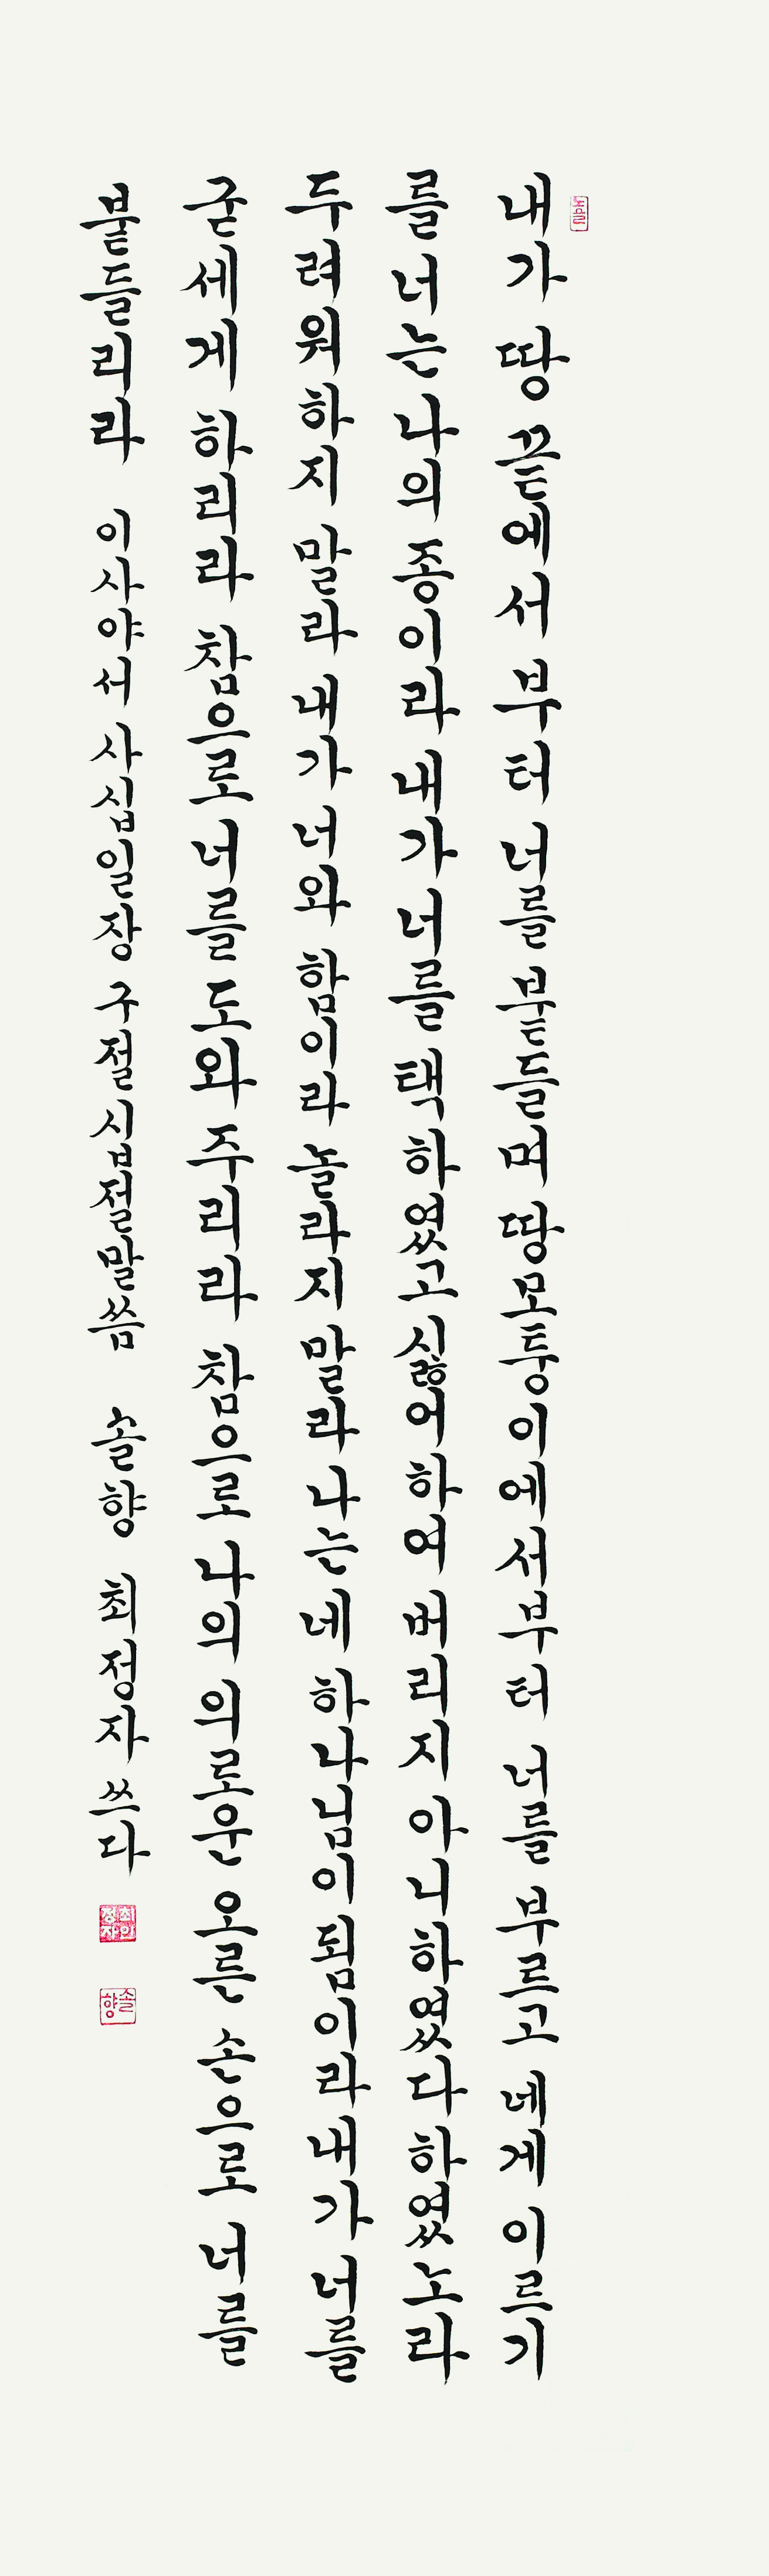 내가 땅 끝에서 부터 너를 붙들며 땅 모퉁이에서부터 너를 부르고 네게 이르기
를 너는 나의 종이라 내가 너를 택하였고 싫어하여 버리지 아니하였다 하였노라
두려워하지 말라 내가 너와 함이라 놀라지 말라 나는 네 하나님이 됨이라 내가 너를
굳세게 하리라 참으로 너를 도와 주리라 참으로 나의 의로운 오른 손으로 너를
붙들리라 이사야서 사십일장 구절 십절말씀 솔향 최정자 쓰다
솔향